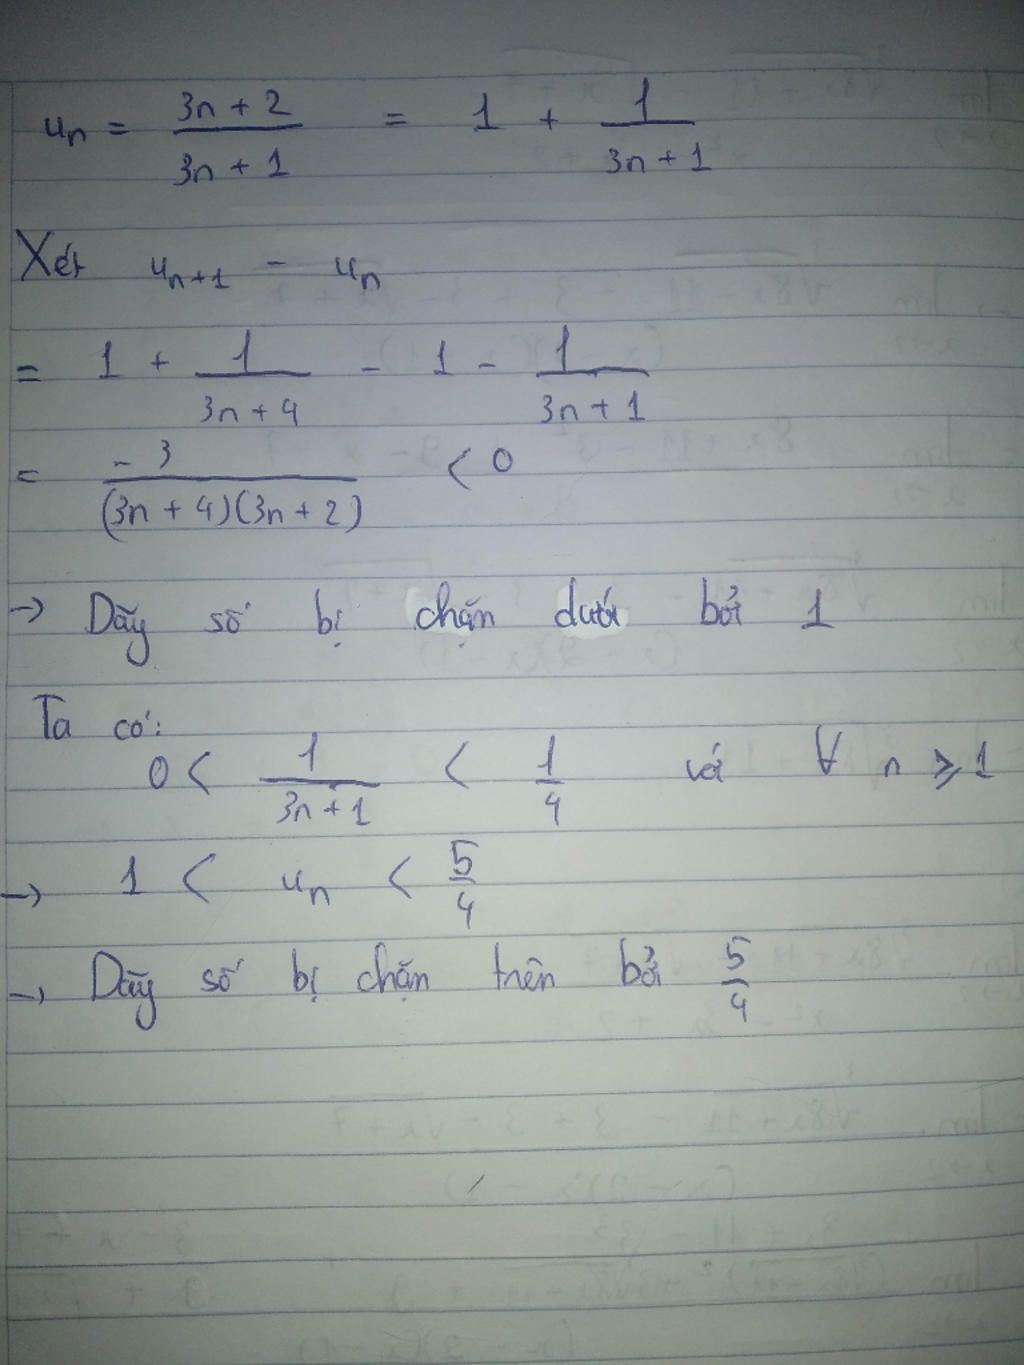 uₙ = (3n + 2)/(3n + 1) = 1 + 1/(3n + 1)
Xét uₙ₊₁ - uₙ
= 1 + 1/(3n + 4) - 1 - 1/(3n + 1)
= -3/((3n + 4)(3n + 2)) < 0
→ Dãy số bị chặn dưới bởi 1
Ta có:
0 < 1/(3n + 1) < 1/4 với ∀ n ≥ 1
→ 1 < uₙ < 5/4
→ Dãy số bị chặn trên bởi 5/4